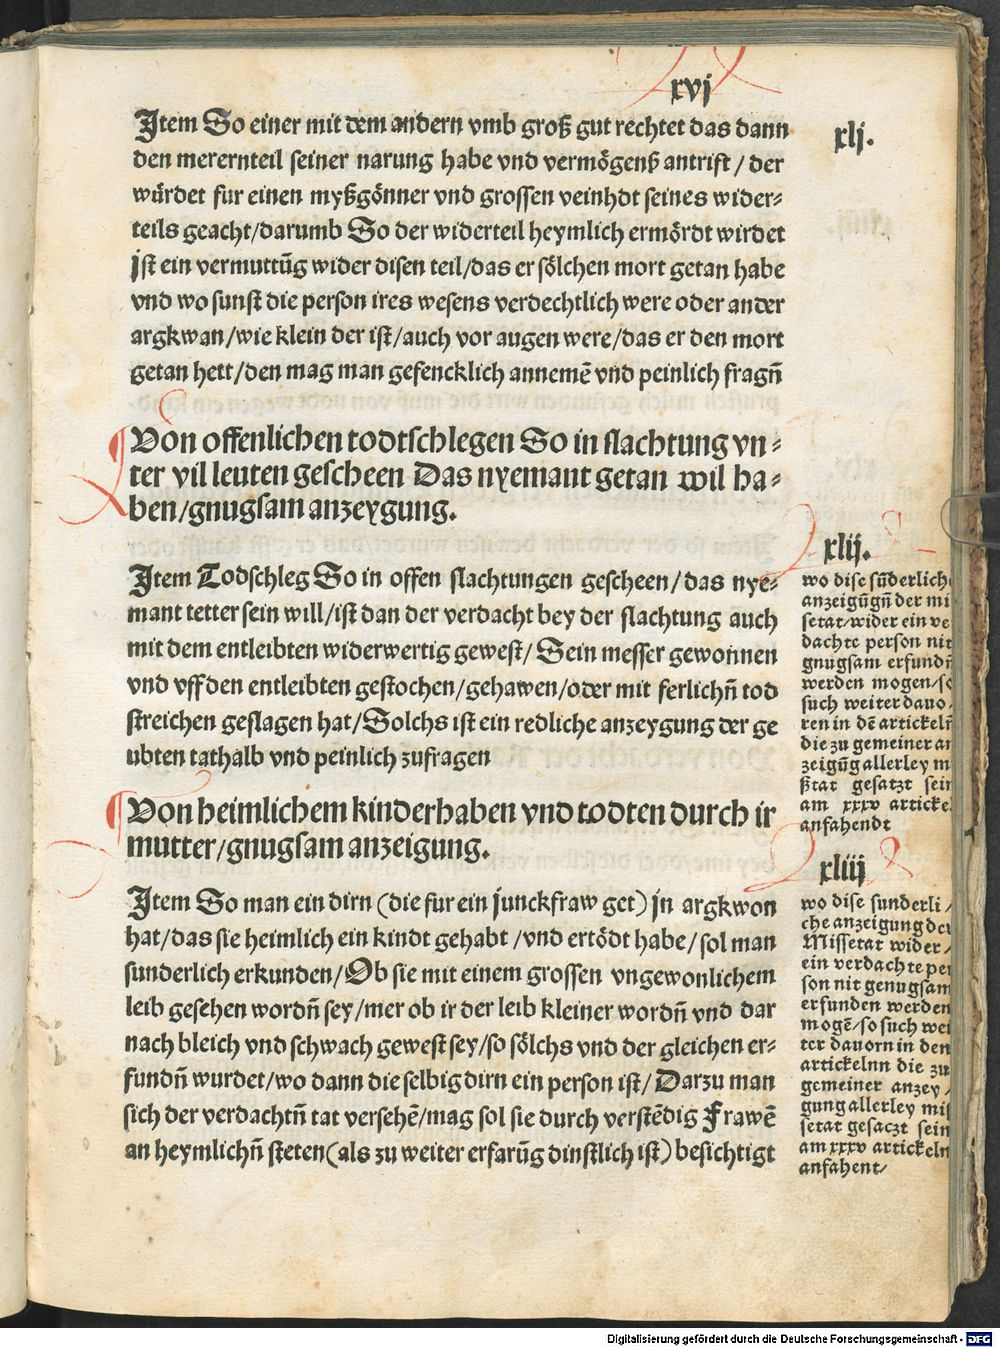 xvj
Jtem So einer mit dem andern vmb groß gut rechtet das dann
den merernteil seiner narung habe vnd vermögenß antrift / der
würdet fur einen myßgönner vnd grossen veinhdt seines wider-
teils geacht/darumb So der widerteil heymlich ermördt wirdet
ist ein vermuttūg wider disen teil/das er sölchen mort getan habe
vnd wo sunst die person ires wesens verdechtlich were oder ander
argkwan/wie klein der ist/auch vor augen were/das er den mort
getan hett/den mag man gefencklich annemē vnd peinlich fragñ
xlj.
Von offenlichen todtschlegen So in slachtung vn-
ter vil leuten gescheen Das nyemant getan wil ha-
ben/gnugsam anzeygung.
Jtem Todschleg So in offen slachtungen gescheen/das nye-
mant tetter sein will/ist dan der verdacht bey der slachtung auch
mit dem entleibten widerwertig gewest/Sein messer gewonnen
vnd vff den entleibten gestochen/gehawen/oder mit ferlichñ tod
streichen geslagen hat/Solchs ist ein redliche anzeygung der ge
ubten tathalb vnd peinlich zufragen
xlij.
wo dise sūderlich
anzeigūgñ der mi
setat/wider ein ve
dachte person nit
gnugsam erfundñ
werden mogen/so
such weiter dauo
ren in dē artickelñ
die zu gemeiner an
zeigūg allerley m
ßtat gesatzt sein
am xxxv articke
anfahendt
Von heimlichem kinderhaben vnd todten durch ir
mutter/gnugsam anzeigung.
Jtem So man ein dirn (die fur ein junckfraw get) jn argkwon
hat/das sie heimlich ein kindt gehabt /vnd ertödt habe/sol man
sunderlich erkunden/Ob sie mit einem grossen vngewonlichem
leib gesehen wordñ sey/mer ob ir der leib kleiner wordñ vnd dar
nach bleich vnd schwach gewest sey/so sölchs vnd der gleichen er-
fundñ wurdet/wo dann die selbig dirn ein person ist/Darzu man
sich der verdachtñ tat versehē/mag sol sie durch verstēdig Frawē
an heymlichñ steten(als zu weiter erfarūg dinstlich ist)besichtigt
xliij
wo dise sunderli/
che anzeigung der
Missetat wider/
ein verdachte per
son nit genugsam
erfunden werden
mogē/so such wei
ter dauorn in den
artickelnn die zu
gemeiner anzey/
gung allerley mis
setat gesaczt sein
am xxxv artickeln
anfahent/
Digitalisierung gefördert durch die Deutsche Forschungsgemeinschaft - DFG